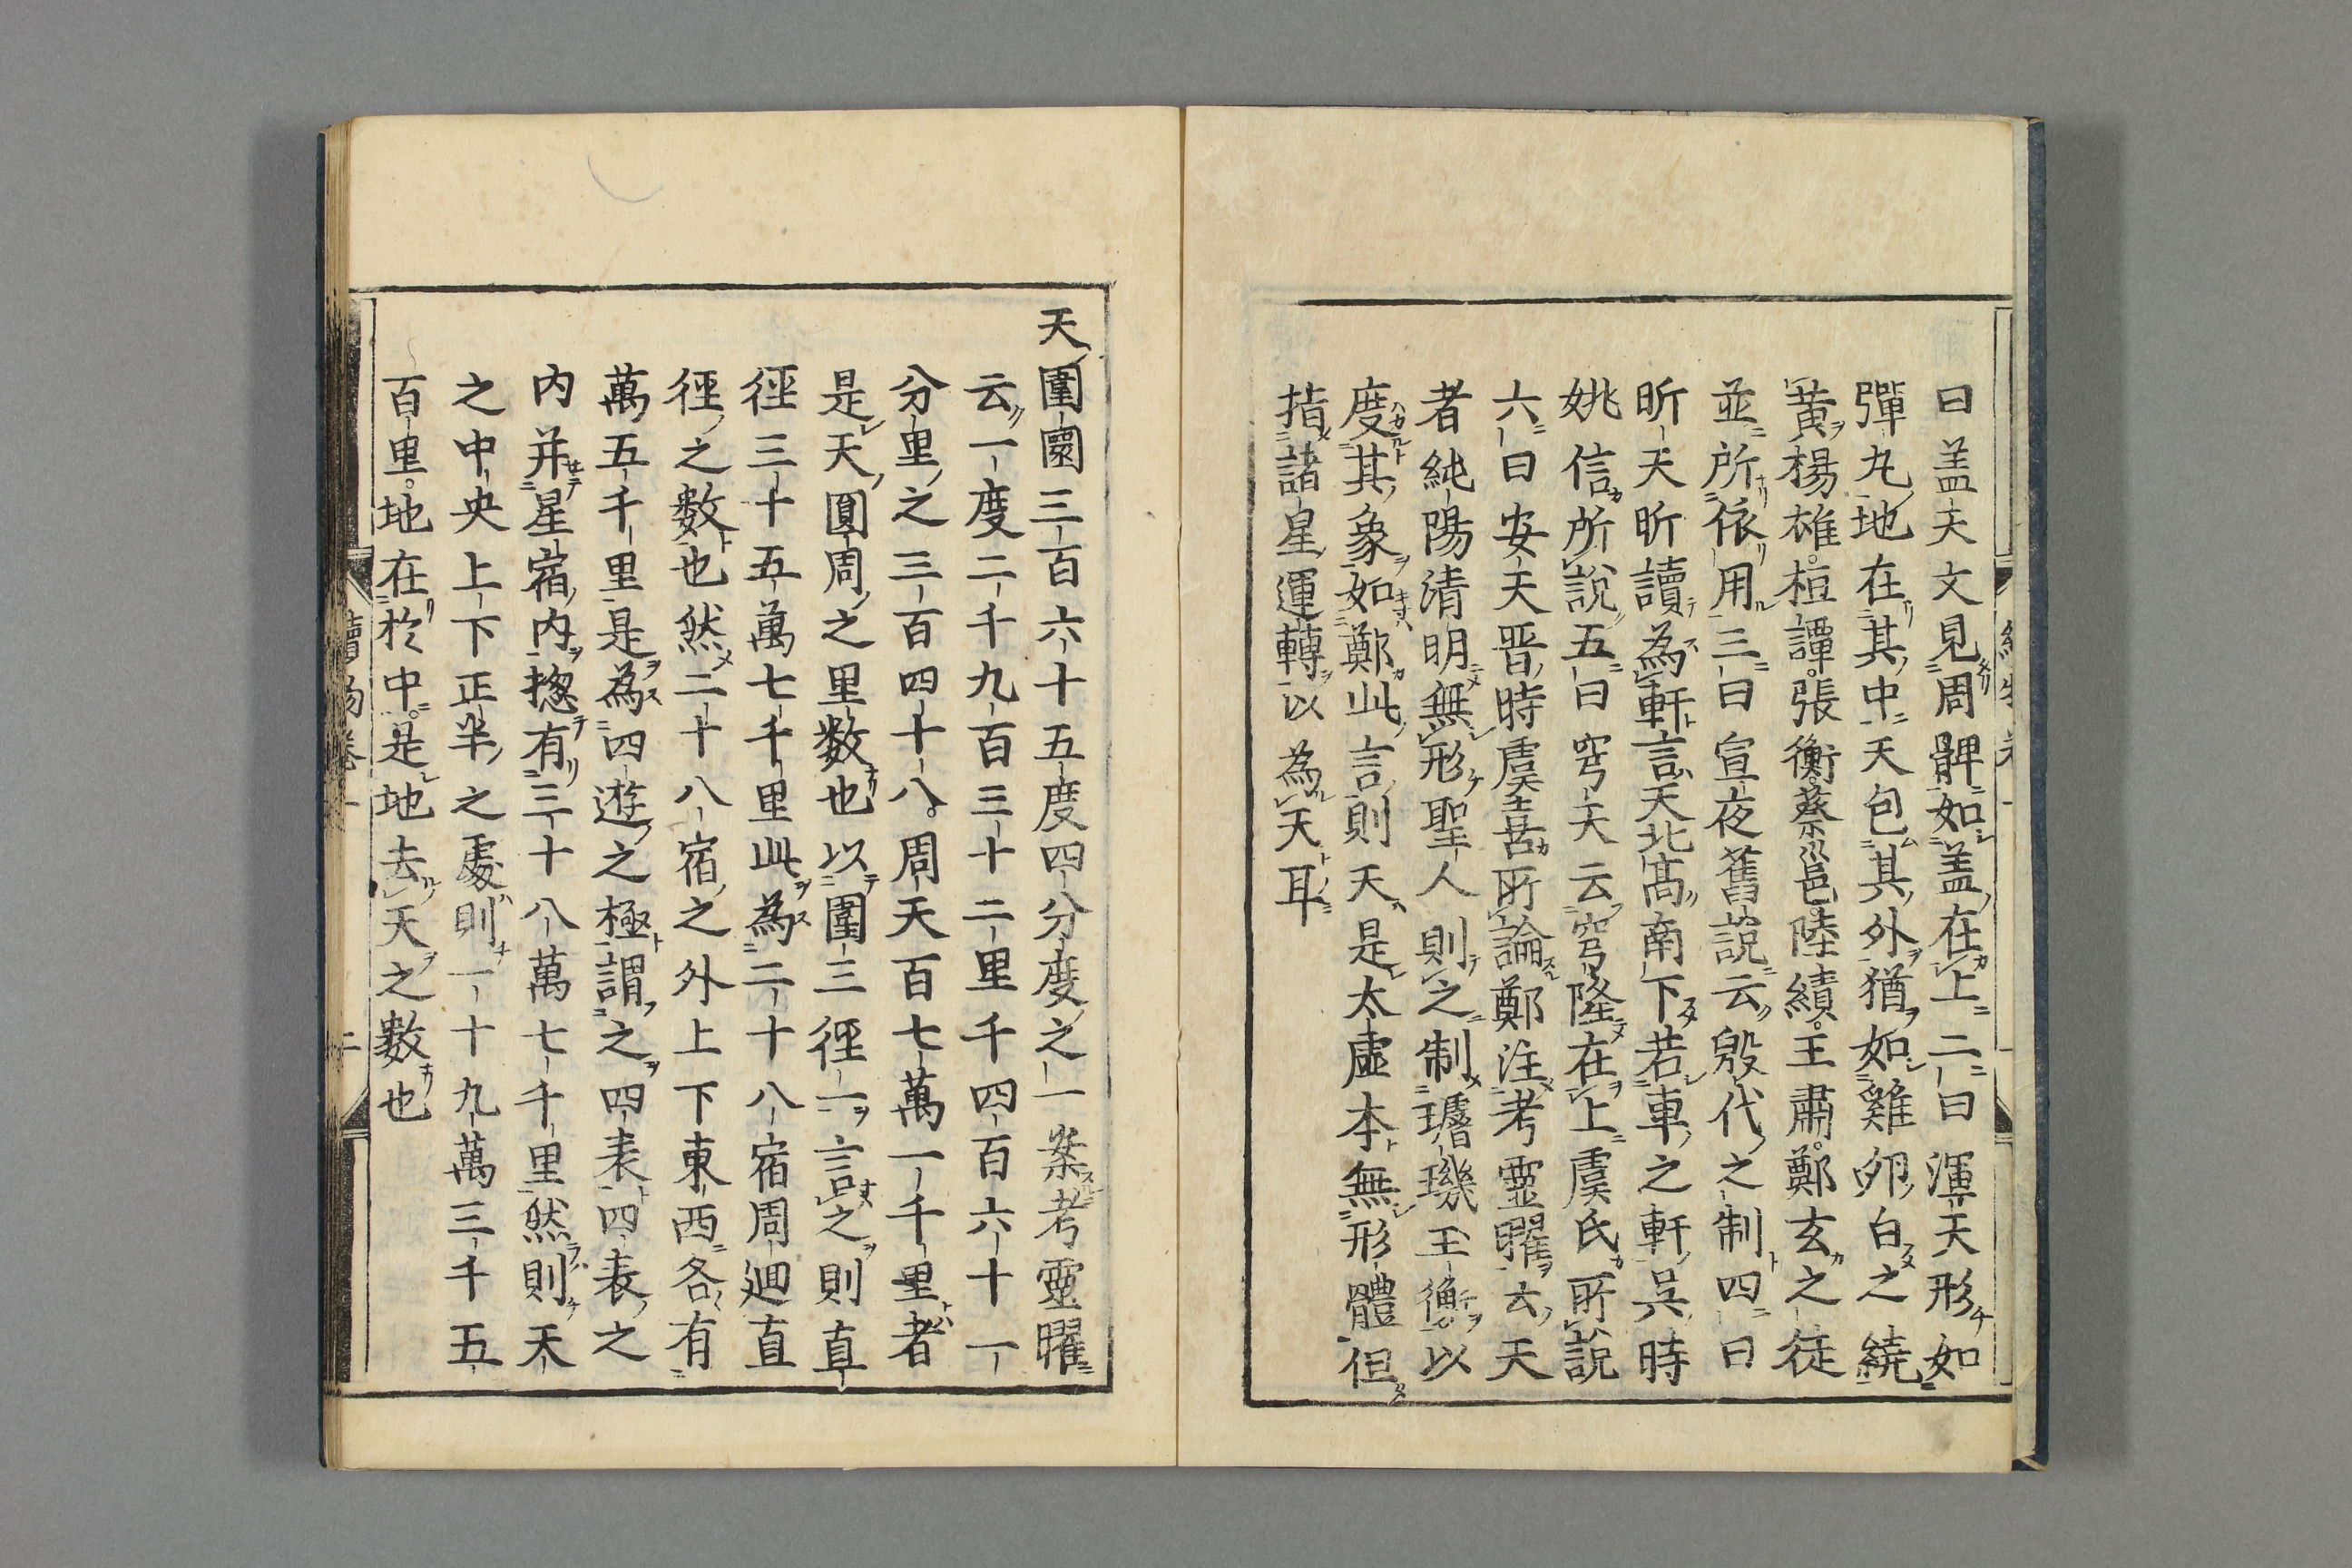 曰盖天文見周髀如盖在上二曰渾天形如
彈丸地在其中天包其外猶如雞卵白之繞
黄楊雄桓譚張衡蔡邕陸績王肅鄭玄之徒
並所依用三曰宣夜舊說云殷代之制四曰
昕天昕讀為軒言天北髙南下若車之軒吳時
姚信所說五曰穹天云穹隆在上虞氏所說
六曰安天晋時虞喜所論鄭注考靈曜云天
者純陽清明無形聖人則之制璿璣玉衡以
度其象如鄭此言則天是太虛本無形體但
指諸星運轉以為天耳
天圍圜三百六十五度四分度之一案考靈曜
云一度二千九百三十二里千四百六十一
分里之三百四十八周天百七萬一千里者
是天圓周之里数也以圍三徑一言之則直
徑三十五萬七千里此為二十八宿周迴直
徑之数也然二十八宿之外上下東西各有
萬五千里是為四遊之極謂之四表四表之
内并星宿内揔有三十八萬七千里然則天
之中央上下正半之處則一十九萬三千五
百里地在於中是地去天之數也